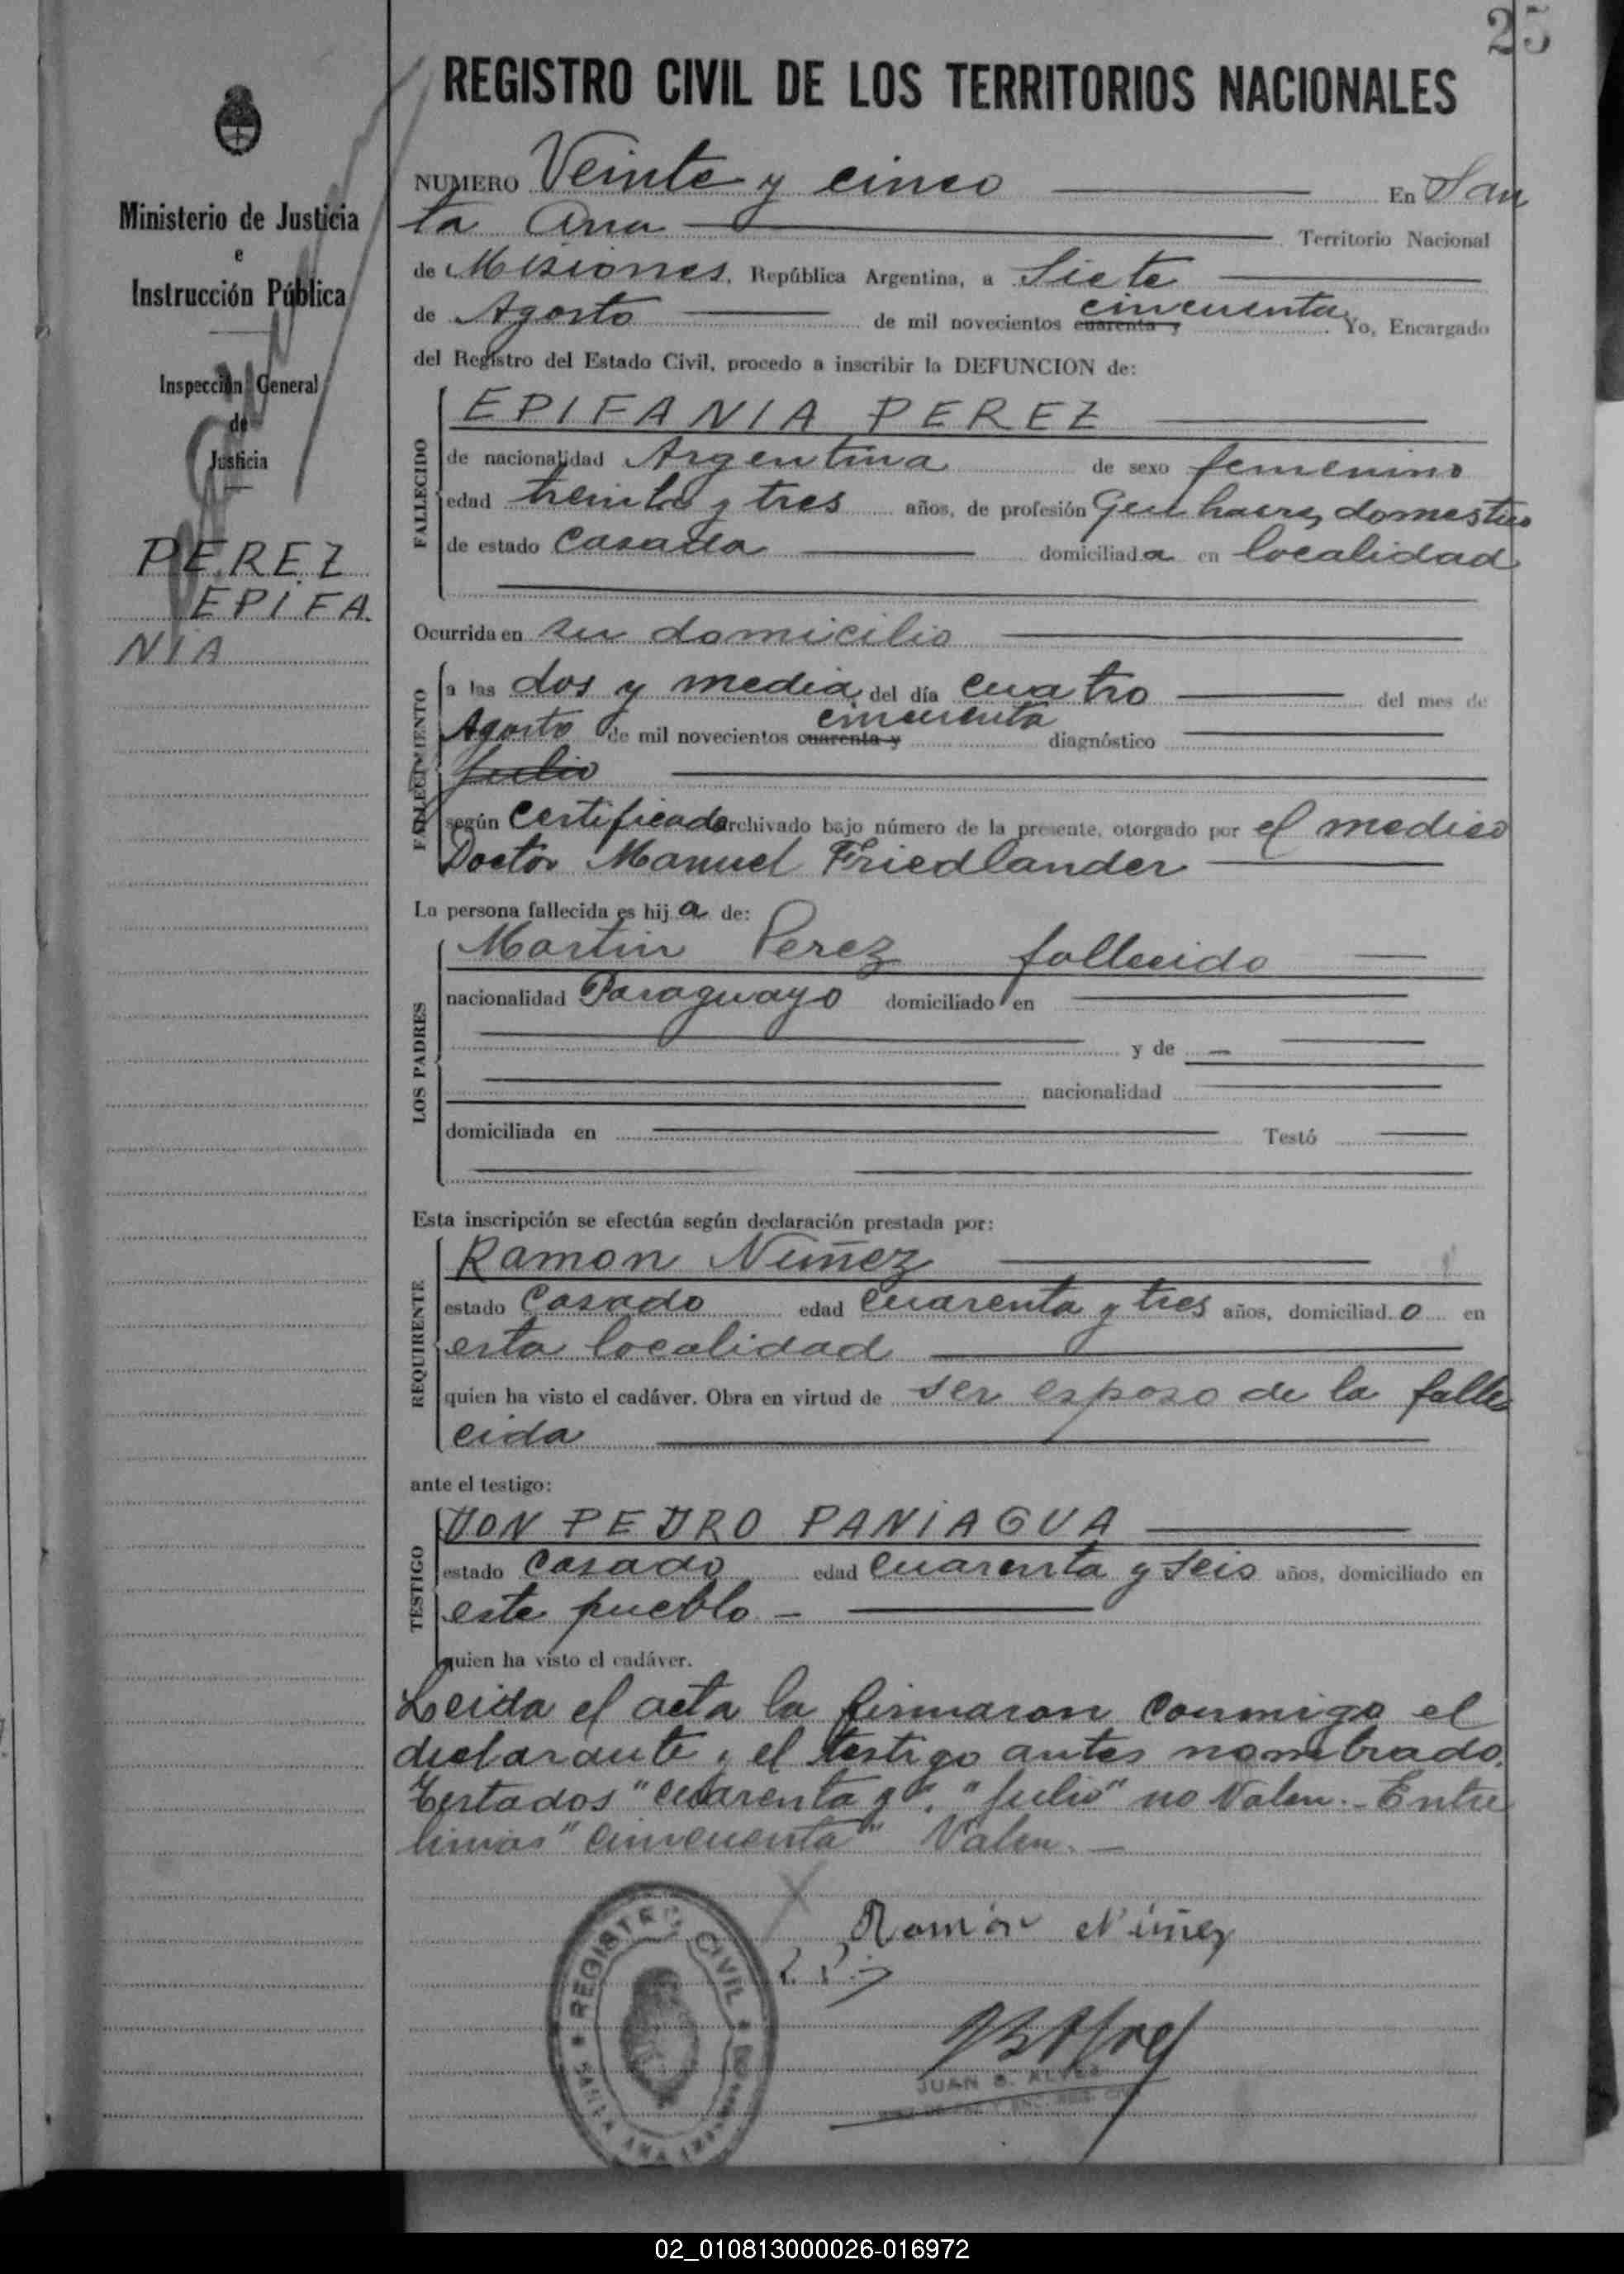 25
REGISTRO CIVIL DE LOS TERRITORIOS NACIONALES
Ministerio de Justicia
e
Instrucción Pública
Inspección General
de
Justicia
PEREZ
EPIFA
NIA
NUMERO Veinte y cinco En San
ta Ana Territorio Nacional
de Misiones, República Argentina, a Siete
de Agosto de mil novecientos cuarenta y cincuenta Yo, Encargado
del Registro del Estado Civil, procedo a inscribir la DEFUNCION de:
FALLECIDO
EPIFANIA PEREZ
de nacionalidad Argentina de sexo femenino
edad treinta y tres años, de profesión Quehacres domestico
de estado Casada domiciliada en localidad
Ocurrida en su domicilio
FALLECIMIENTO
a las dos y media del día cuatro del mes de
Agosto de mil novecientos cuarenta y cincuenta diagnóstico
Julio
según Certificado archivado bajo número de la presente, otorgado por el medico
Doctor Manuel Friedlander
La persona fallecida es hija de:
LOS PADRES
Martin Perez fallecido
nacionalidad Paraguayo domiciliado en
y de
nacionalidad
domiciliada en Testó
Esta inscripción se efectúa según declaración prestada por:
REQUIRENTE
Ramon Nuñez
estado Casado edad Cuarenta y tres años, domiciliado en
esta localidad
quien ha visto el cadáver. Obra en virtud de ser esposo de la falle
cida
ante el testigo:
TESTIGO
DON PEDRO PANIAGUA
estado Casado edad Cuarenta y Seis años, domiciliado en
este pueblo -
quien ha visto el cadáver.
Leida el acta la firmaron conmigo el
declarante y el testigo antes nombrado.
Testados "cuarenta y", "Julio" no Valen.- Entre
lineas "cincuenta" Valen.-
Ramón Núñez
REGISTRO CIVIL
SANTA ANA
JUAN B. ALVES
02_010813000026-016972